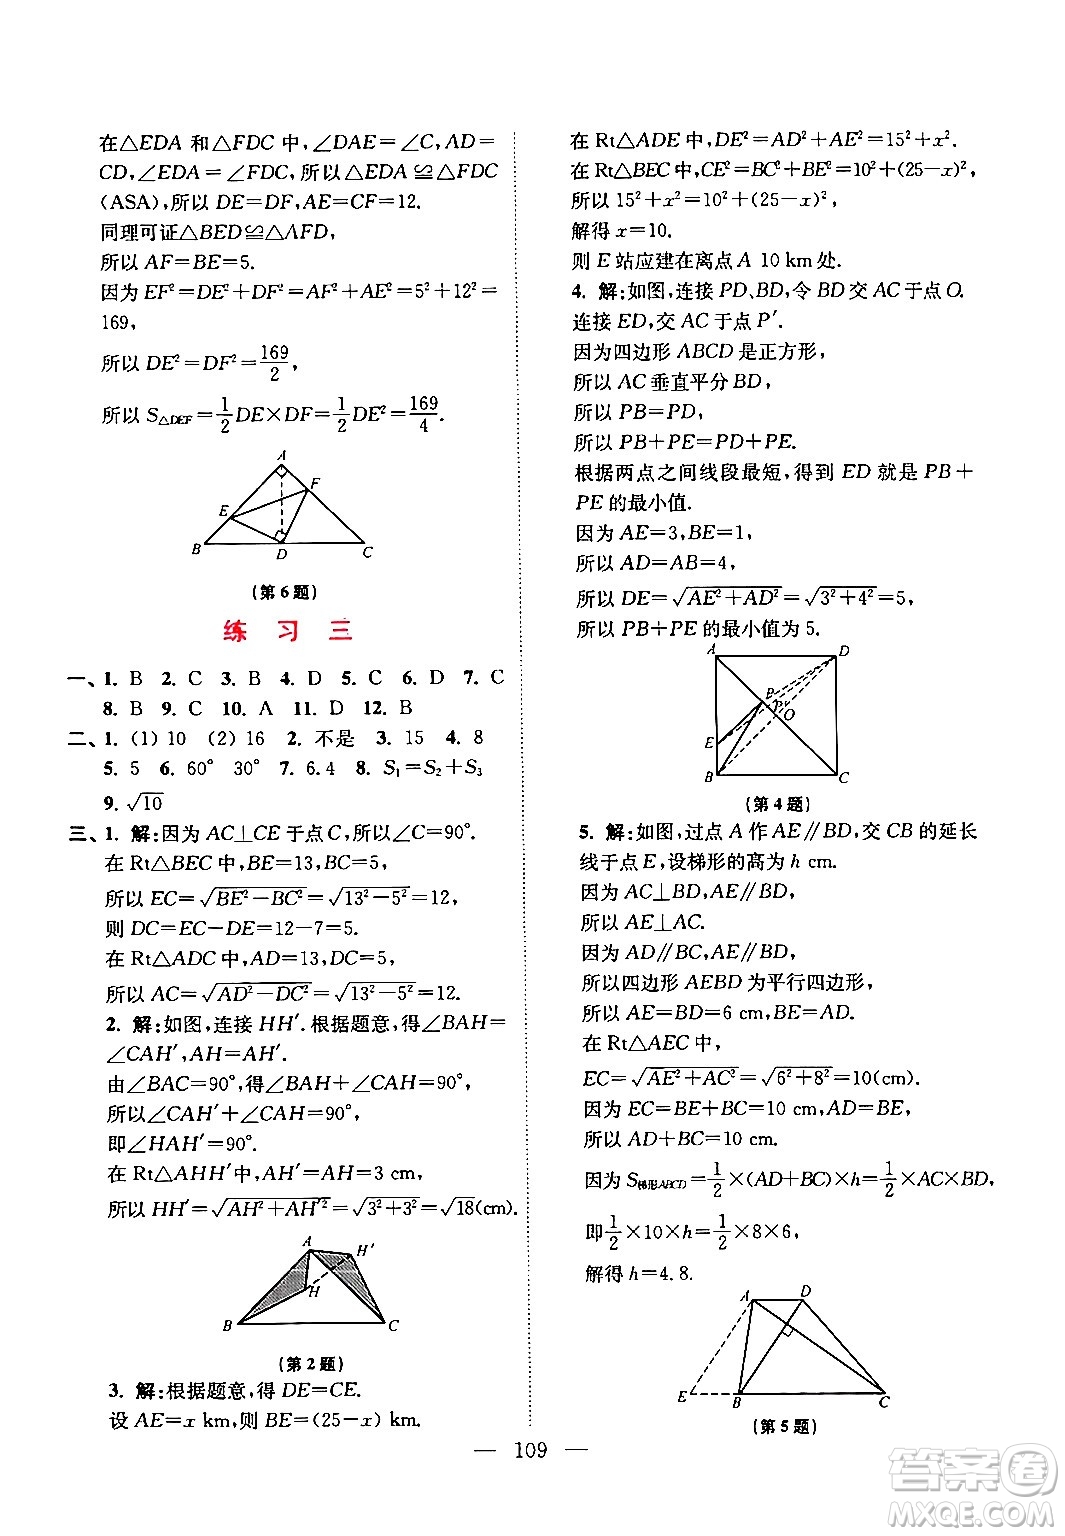 在△EDA 和△FDC 中,∠DAE=∠C,AD=
CD,∠EDA=∠FDC,所以△EDA≌△FDC
(ASA),所以 DE=DF,AE=CF=12.
同理可证△BED≌△AFD,
所以 AF=BE=5.
因为 EF²=DE²+DF²=AF²+AE²=5²+12²=
169,
所以 DE²=DF²=169/2,
所以 S△DEF=1/2 DE×DF=1/2 DE²=169/4.
A
F
E
B
D
C
(第6题)
练 习 三
一、1. B 2. C 3. B 4. D 5. C 6. D 7. C
8. B 9. C 10. A 11. D 12. B
二、1. (1) 10 (2) 16 2. 不是 3. 15 4. 8
5. 5 6. 60° 30° 7. 6.4 8. S₁=S₂+S₃
9. √10
三、1. 解:因为 AC⊥CE 于点 C,所以∠C=90°.
在 Rt△BEC 中,BE=13,BC=5,
所以 EC=√(BE²−BC²)=√(13²−5²)=12,
则 DC=EC−DE=12−7=5.
在 Rt△ADC 中,AD=13,DC=5,
所以 AC=√(AD²−DC²)=√(13²−5²)=12.
2. 解:如图,连接 HH′.根据题意,得∠BAH=
∠CAH′,AH=AH′.
由∠BAC=90°,得∠BAH+∠CAH=90°,
所以∠CAH′+∠CAH=90°,
即∠HAH′=90°.
在 Rt△AHH′中,AH′=AH=3 cm,
所以 HH′=√(AH²+AH′²)=√(3²+3²)=√18(cm).
A
H′
H
B
C
(第2题)
3. 解:根据题意,得 DE=CE.
设 AE=x km,则 BE=(25−x) km.
在 Rt△ADE 中,DE²=AD²+AE²=15²+x².
在 Rt△BEC 中,CE²=BC²+BE²=10²+(25−x)²,
所以 15²+x²=10²+(25−x)²,
解得 x=10.
则 E 站应建在离点 A 10 km 处.
4. 解:如图,连接 PD、BD,令 BD 交 AC 于点 O.
连接 ED,交 AC 于点 P′.
因为四边形 ABCD 是正方形,
所以 AC 垂直平分 BD,
所以 PB=PD,
所以 PB+PE=PD+PE.
根据两点之间线段最短,得到 ED 就是 PB+
PE 的最小值.
因为 AE=3,BE=1,
所以 AD=AB=4,
所以 DE=√(AE²+AD²)=√(3²+4²)=5,
所以 PB+PE 的最小值为 5.
A
D
P
P′
O
E
B
C
(第4题)
5. 解:如图,过点 A 作 AE∥BD,交 CB 的延长
线于点 E,设梯形的高为 h cm.
因为 AC⊥BD,AE∥BD,
所以 AE⊥AC.
因为 AD∥BC,AE∥BD,
所以四边形 AEBD 为平行四边形,
所以 AE=BD=6 cm,BE=AD.
在 Rt△AEC 中,
EC=√(AE²+AC²)=√(6²+8²)=10(cm).
因为 EC=BE+BC=10 cm,AD=BE,
所以 AD+BC=10 cm.
因为 S梯形ABCD=1/2×(AD+BC)×h=1/2×AC×BD,
即1/2×10×h=1/2×8×6,
解得 h=4.8.
A
D
E
B
C
(第5题)
— 109 —
答案圈
MXQE.COM